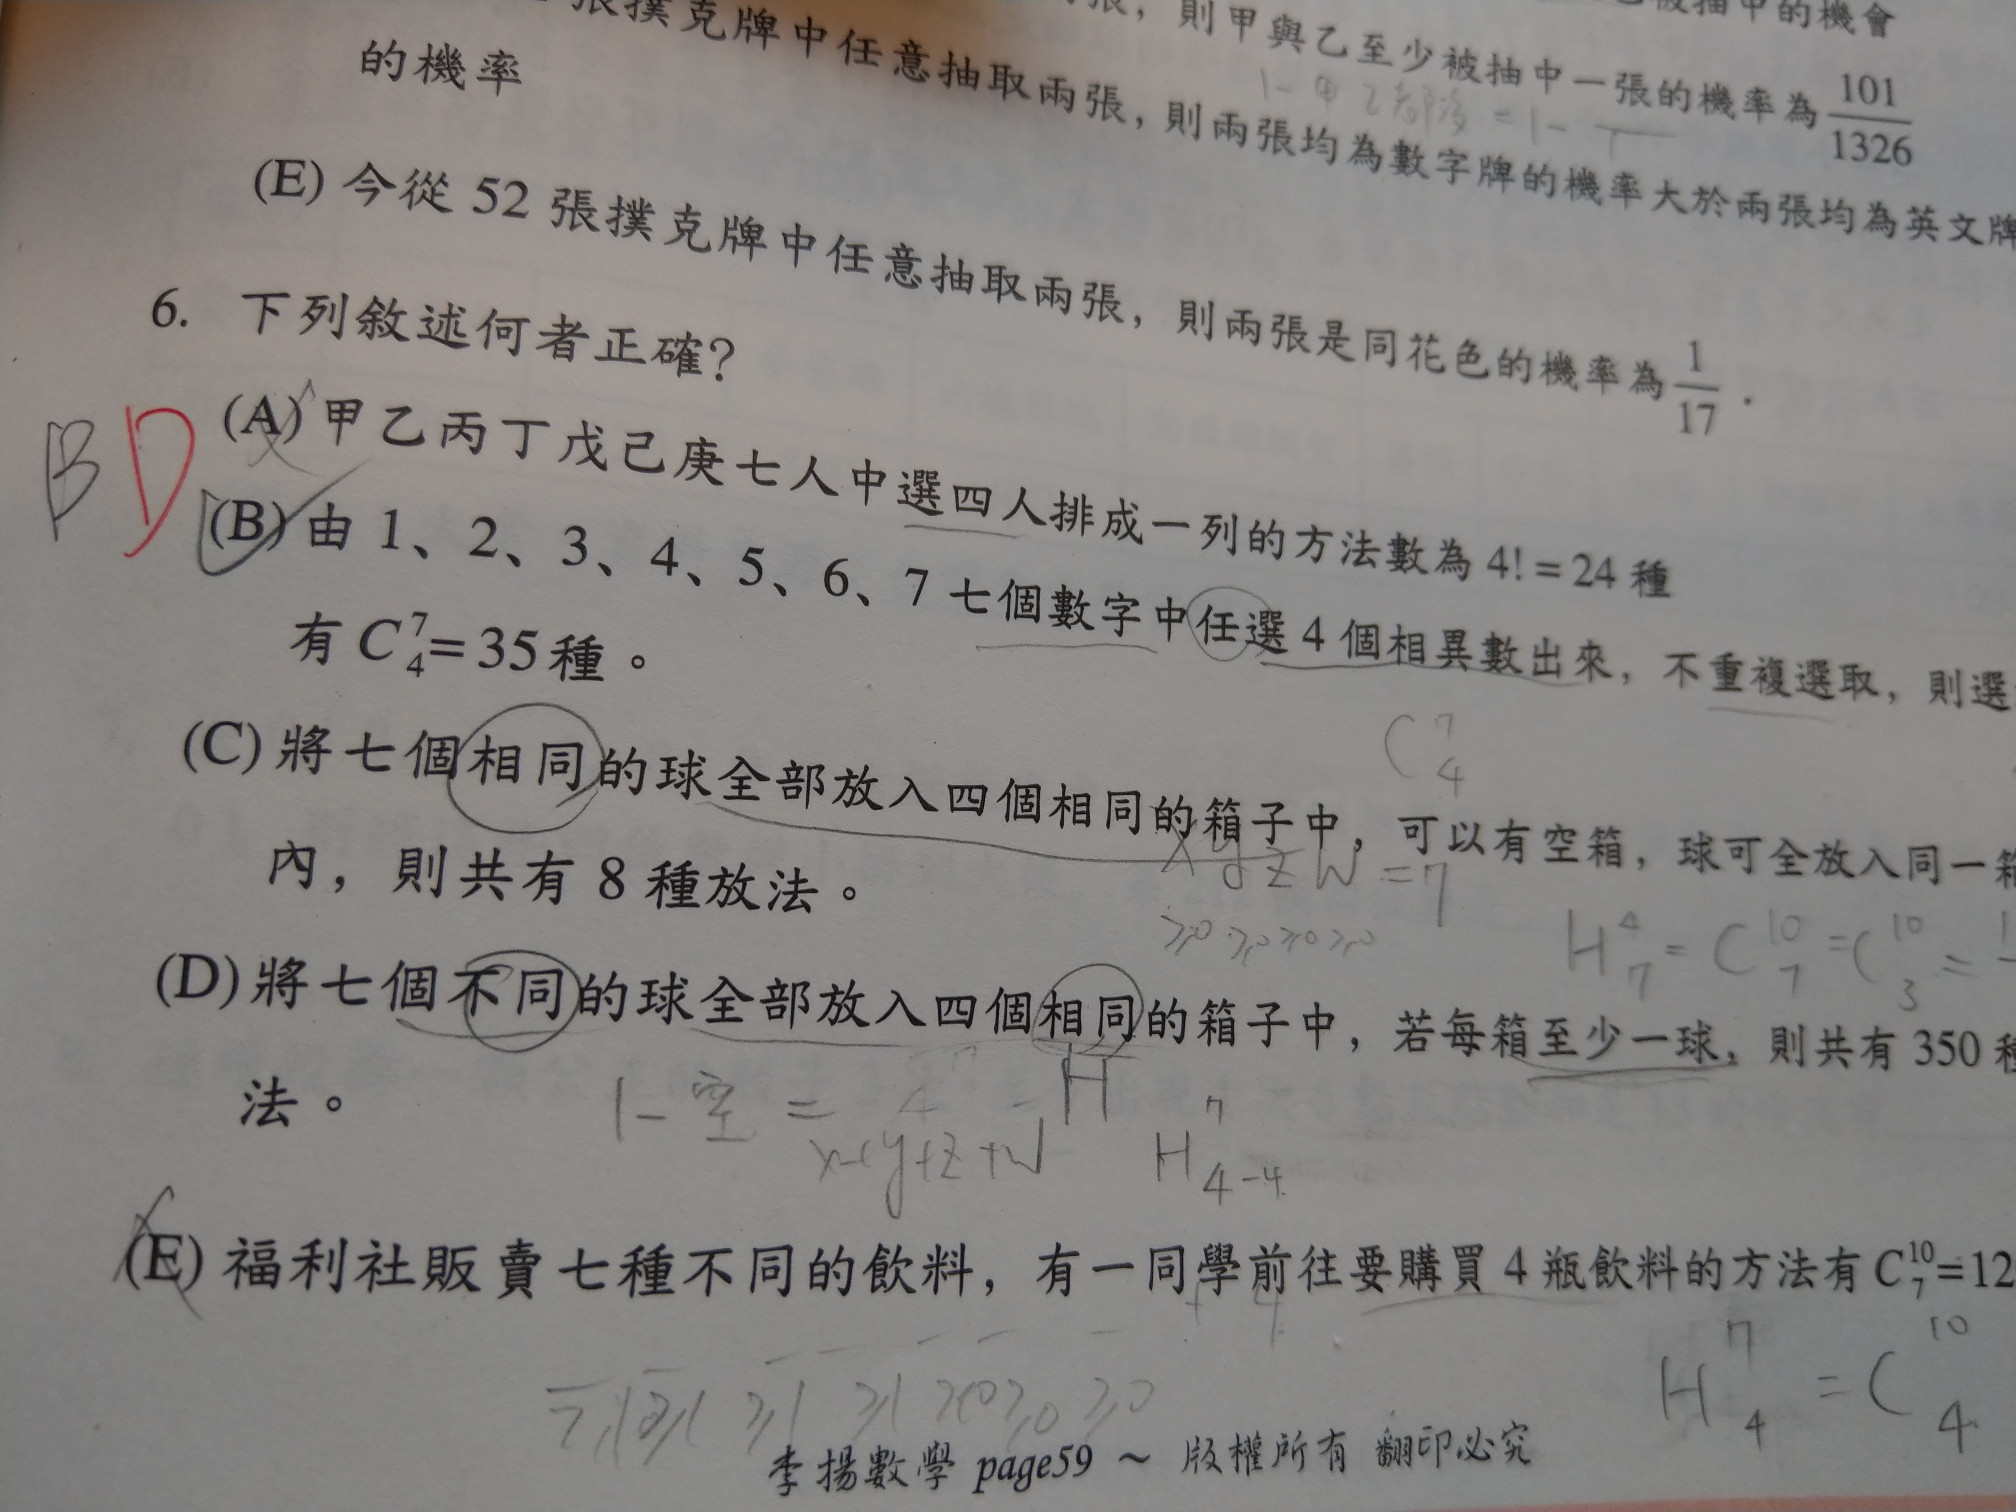 張，則甲與乙至少被抽中一張的機率為 101/1326
1-甲乙都沒=1-
張撲克牌中任意抽取兩張，則兩張均為數字牌的機率大於兩張均為英文牌
的機率
(E) 今從 52 張撲克牌中任意抽取兩張，則兩張是同花色的機率為 1/17．
6. 下列敘述何者正確?
BD
(A) 甲乙丙丁戊己庚七人中選四人排成一列的方法數為 4! = 24 種
(B) 由 1、2、3、4、5、6、7 七個數字中任選 4 個相異數出來，不重複選取，則選
有 C⁷₄ = 35 種。
C⁷₄
(C) 將七個相同的球全部放入四個相同的箱子中，可以有空箱，球可全放入同一箱
x y z w = 7
內，則共有 8 種放法。
≥0 ≥0 ≥0 ≥0
H⁴₇ = C¹⁰₇ = C¹⁰₃ =
(D) 將七個不同的球全部放入四個相同的箱子中，若每箱至少一球，則共有 350 種
法。
1-空 = 4 - H
x+y+z+w
H⁷₄₋₄
(E) 福利社販賣七種不同的飲料，有一同學前往要購買 4 瓶飲料的方法有 C¹⁰₇ = 12
H⁷₄ = C¹⁰₄
李揚數學 page59 ~ 版權所有 翻印必究